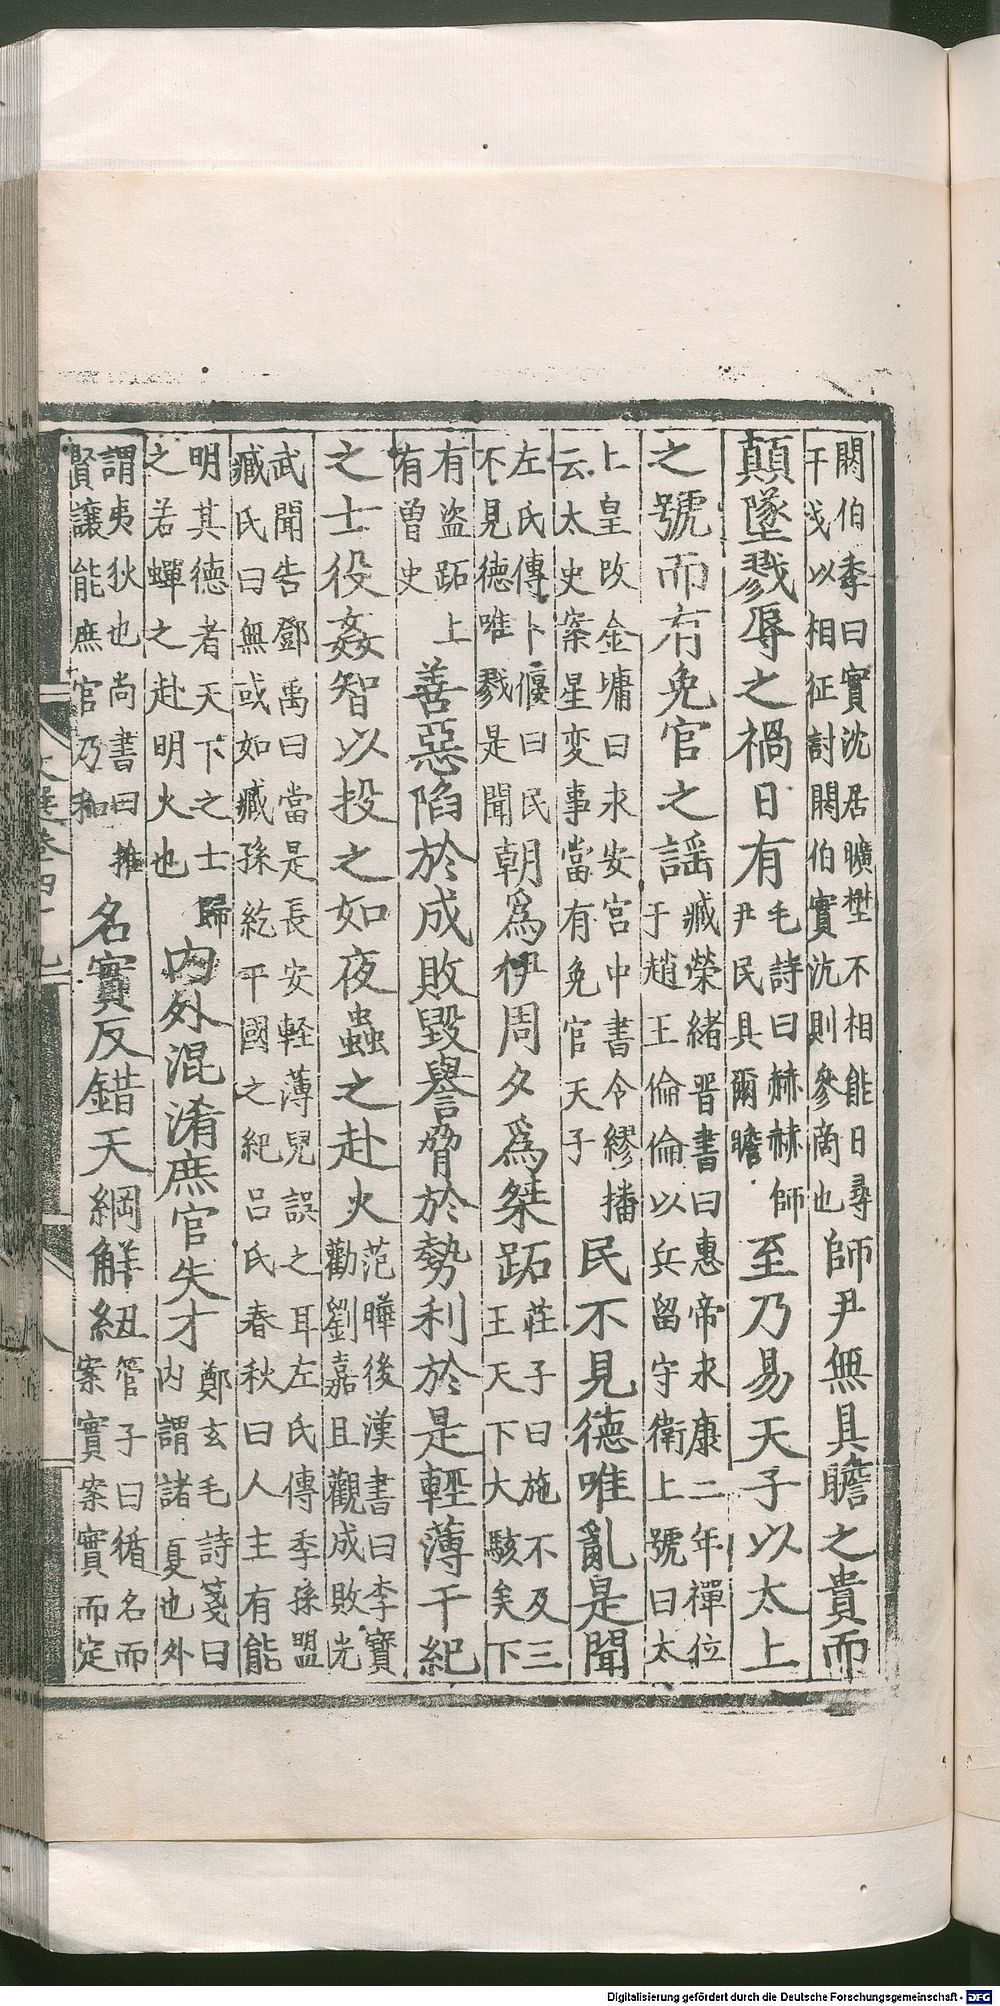 閼伯季曰實沈居曠埜不相能日尋
干戈以相征討閼伯實沈則參商也
師尹無具瞻之貴而
顛墜戮辱之禍日有
毛詩曰赫赫師
尹民具爾瞻
至乃易天子以太上
之號而有免官之謠
臧榮緒晋書曰惠帝永康二年禪位
于趙王倫倫以兵留守衛上號曰太
上皇改金墉曰永安宫中書令繆播
云太史案星変事當有免官天子
民不見德唯亂是聞
左氏傳卜偃曰民
不見德唯戮是聞
朝爲伊周夕爲桀跖
莊子曰施不及三
王天下大駭矣下
有盜跖上
有曾史
善惡陷於成敗毀譽脅於勢利於是輕薄干紀
之士役姦智以投之如夜蟲之赴火
范曄後漢書曰李寳
勸劉嘉且觀成敗光
武聞告鄧禹曰當是長安軽薄兒誤之耳左氏傳季孫盟
臧氏曰無或如臧孫紇平國之紀吕氏春秋曰人主有能
明其德者天下之士歸
之若蟬之赴明火也
内外混淆庶官失才
鄭玄毛詩箋曰
内謂諸夏也外
謂夷狄也尚書曰推
賢讓能庶官乃和
名實反錯天綱解紐
管子曰循名而
案實案實而定
文選卷四十九
Digitalisierung gefördert durch die Deutsche Forschungsgemeinschaft - DFG